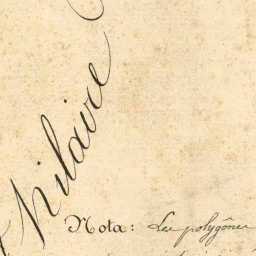 hilaire
Nota: Les polygônes